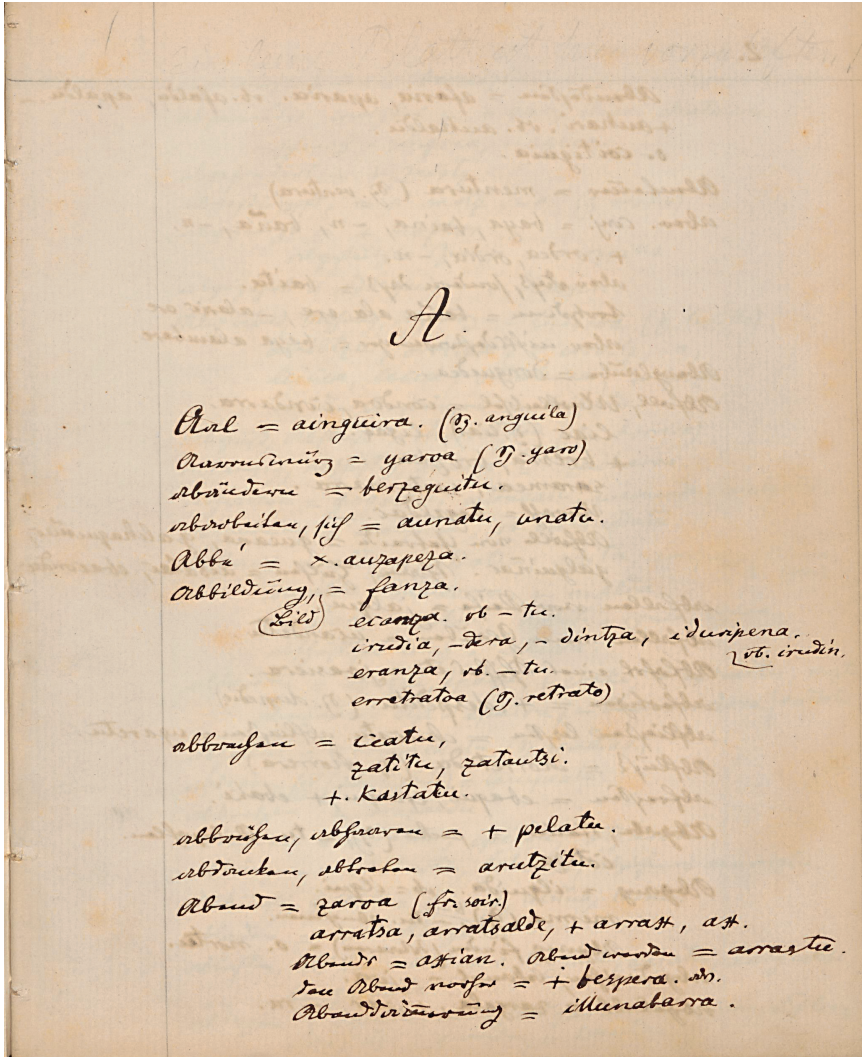 A.
Aal = ainguira. (sp. anguila)
Aaronswurz = yaroa (sp. yaro)
abändern = berzeguitu.
abarbeiten, sich = aunatu, unatu.
Abbé = x. auzapeza.
Abbildung, = fanza.
(Bild) ecanza. vb - tu.
irudia, -dera, - dintza, iduripena.
vb. irudin.
eranza, vb. - tu.
erretratoa (sp. retrato)
abbrechen = ceatu,
zatitu, zatautsi.
+ kastatu.
abbrühen, abhaaren = + pelatu.
abdanken, abtreten = arutzitu.
Abend = zaroa (fr. soir.)
arratsa, arratsalde, + arrast, ast.
Abends = astian. Abend werden = arrastu.
den Abend vorher = + bespera.
Abenddämmerung = illunabarra.